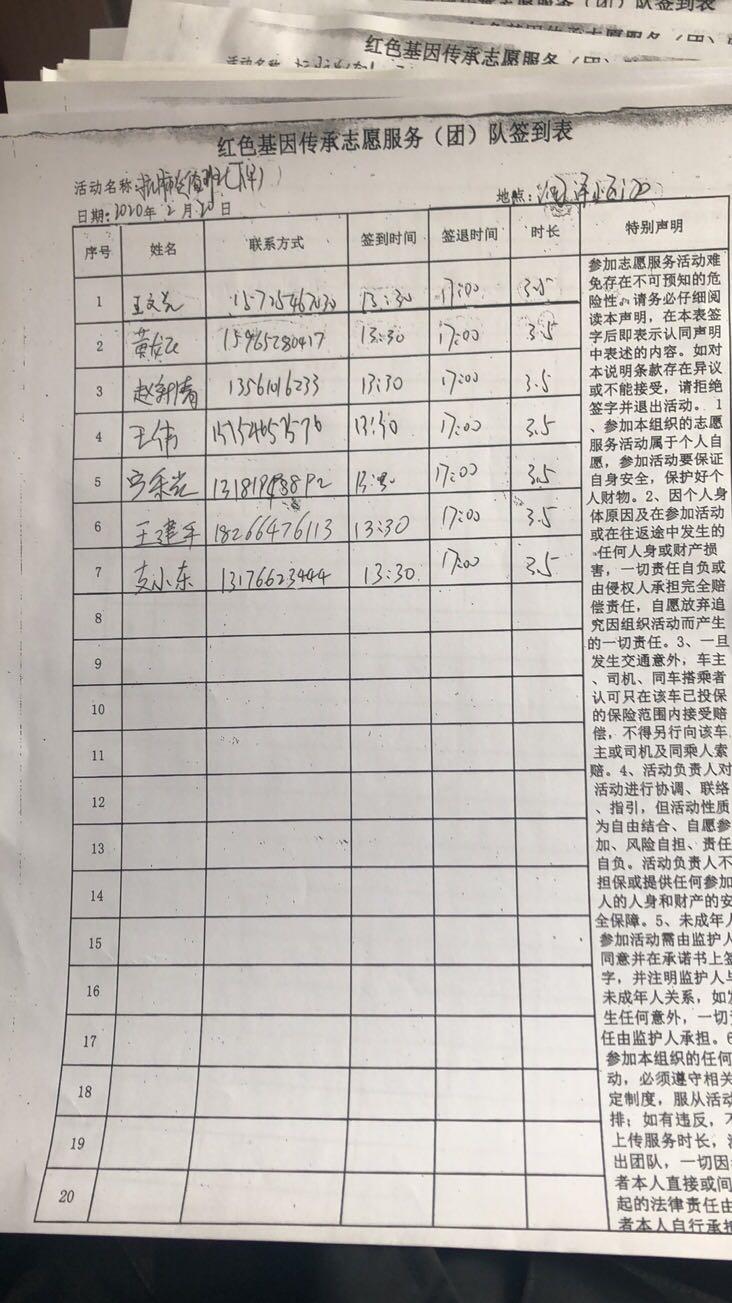 红色基因传承志愿服务（团）队签到表
活动名称:
日期:2020年2月20日
地点:
序号 姓名 联系方式 签到时间 签退时间 时长 特别声明
1 王文光 13:30 17:00 3.5
2 15965280417 13:30 17:00 3.5
3 赵新清 13561016233 13:30 17:00 3.5
4 王伟 13:30 17:00 3.5
5 13:30 17:00 3.5
6 王建军 18266476113 13:30 17:00 3.5
7 支小东 13176623444 13:30 17:00 3.5
8
9
10
11
12
13
14
15
16
17
18
19
20
参加志愿服务活动难
免存在不可预知的危
险性。请务必仔细阅
读本声明，在本表签
字后即表示认同声明
中表述的内容。如对
本说明条款存在异议
或不能接受，请拒绝
签字并退出活动。1
、参加本组织的志愿
服务活动属于个人自
愿，参加活动要保证
自身安全，保护好个
人财物。2、因个人身
体原因及在参加活动
或在往返途中发生的
任何人身或财产损
害，一切责任自负或
由侵权人承担完全赔
偿责任，自愿放弃追
究因组织活动而产生
的一切责任。3、一旦
发生交通意外，车主
、司机、同车搭乘者
认可只在该车已投保
的保险范围内接受赔
偿，不得另行向该车
主或司机及同乘人索
赔。4、活动负责人对
活动进行协调、联络
、指引，但活动性质
为自由结合、自愿参
加、风险自担、责任
自负。活动负责人不
担保或提供任何参加
人的人身和财产的安
全保障。5、未成年人
参加活动需由监护人
同意并在承诺书上签
字，并注明监护人与
未成年人关系，如发
生任何意外，一切责
任由监护人承担。6
参加本组织的任何
动，必须遵守相关
定制度，服从活动
排；如有违反，不
上传服务时长，
出团队，一切因
者本人直接或间
起的法律责任由
者本人自行承担